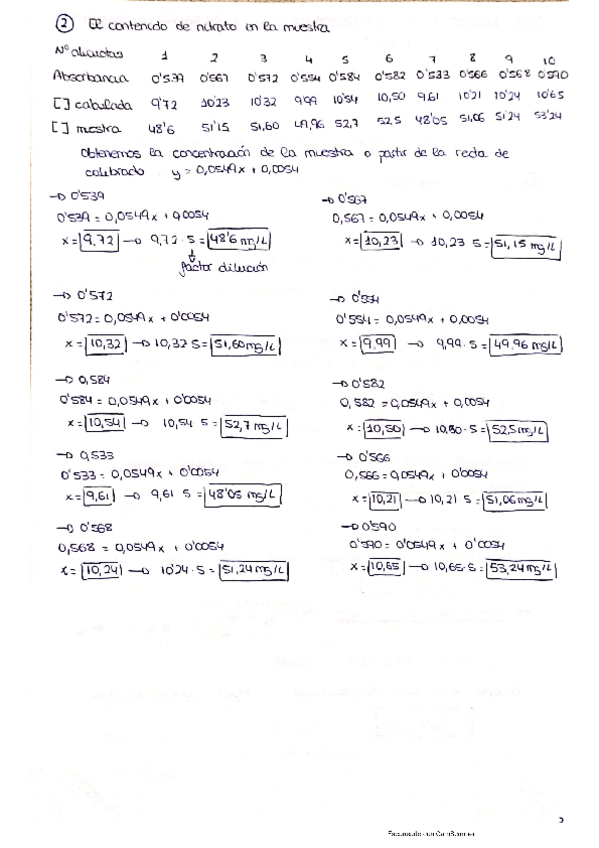 ② El contenido de nitrato en la muestra
Nº alicuotas 1 2 3 4 5 6 7 8 9 10
Absorbancia 0'539 0'567 0'572 0'554 0'584 0'582 0'533 0'566 0'568 0'590
[ ] calculada 9'72 10'23 10'32 9'99 10'54 10,50 9,61 10'21 10'24 10'65
[ ] muestra 48'6 51'15 51,60 49,96 52,7 52,5 48'05 51,06 51'24 53'24
Obtenemos la concentración de la muestra a partir de la recta de
calibrado y = 0,0549x + 0,0054
→ 0'539
0'539 = 0,0549x + 0,0054
x = 9,72 → 9,72 · 5 = 48'6 mg/L
factor dilución
→ 0'567
0,567 = 0,0549x + 0,0054
x = 10,23 → 10,23 · 5 = 51,15 mg/L
→ 0'572
0'572 = 0,0549x + 0'0054
x = 10,32 → 10,32 · 5 = 51,60 mg/L
→ 0'554
0'554 = 0,0549x + 0,0054
x = 9,99 → 9,99 · 5 = 49,96 mg/L
→ 0,584
0'584 = 0,0549x + 0'0054
x = 10,54 → 10,54 · 5 = 52,7 mg/L
→ 0'582
0,582 = 0,0549x + 0,0054
x = 10,50 → 10,50 · 5 = 52,5 mg/L
→ 0,533
0'533 = 0,0549x + 0'0054
x = 9,61 → 9,61 · 5 = 48'05 mg/L
→ 0'566
0,566 = 0,0549x + 0'0054
x = 10,21 → 10,21 · 5 = 51,06 mg/L
→ 0'568
0,568 = 0,0549x + 0'0054
x = 10,24 → 10'24 · 5 = 51,24 mg/L
→ 0'590
0'590 = 0'0549x + 0'0054
x = 10,65 → 10,65 · 5 = 53,24 mg/L
Escaneado con CamScanner